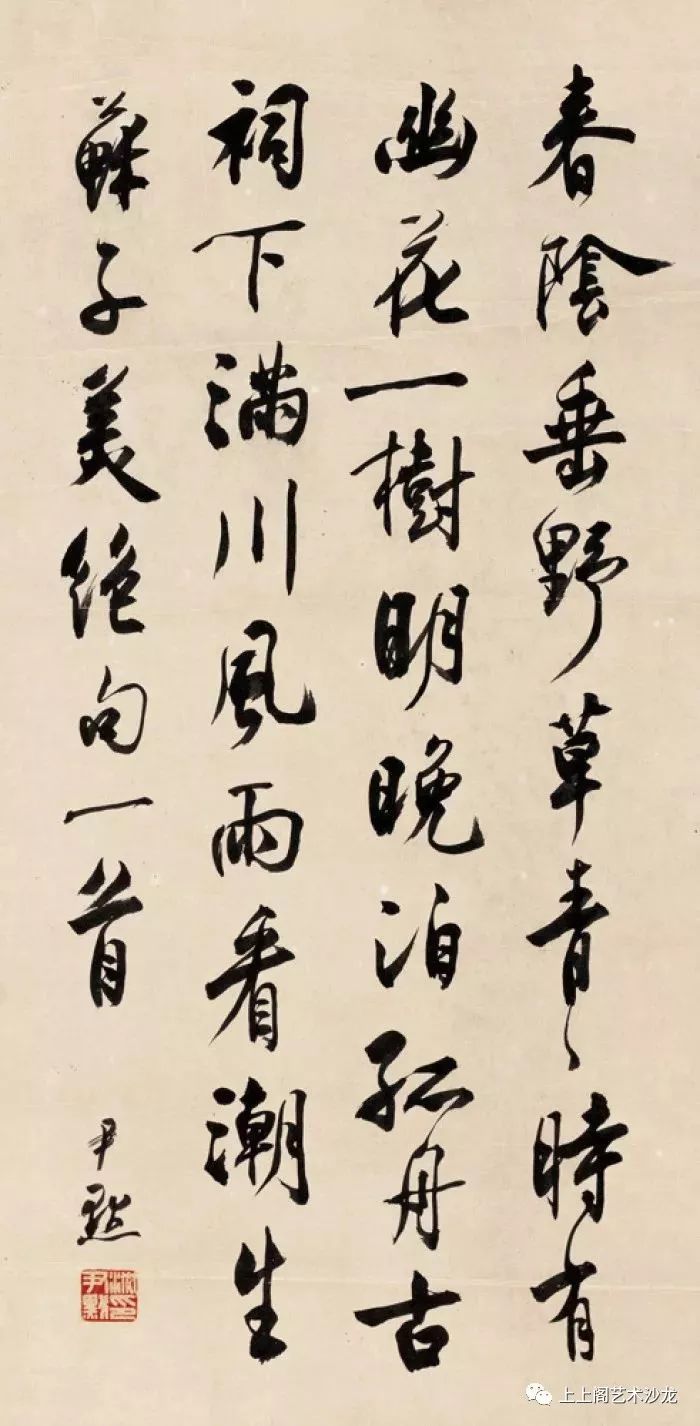 春陰垂野草青〻時有
幽花一樹明晚泊孤舟古
祠下滿川風雨看潮生
蘇子美絕句一首
尹默
沈尹默印
上上阁艺术沙龙